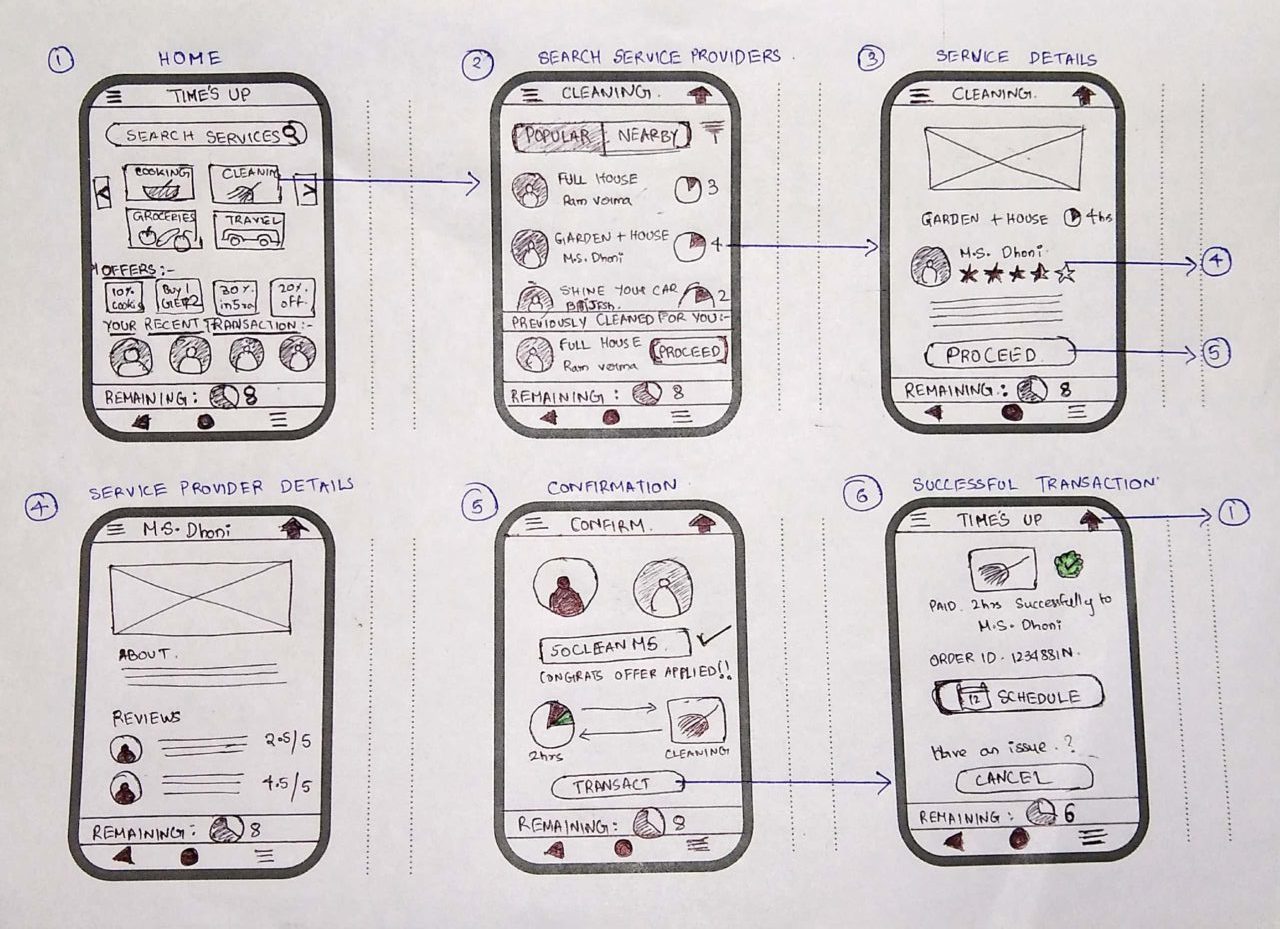 1 HOME
TIME'S UP
SEARCH SERVICES
COOKING CLEANIN
GROCERIES TRAVEL
OFFERS :-
10% Buy 1 30% 20%
GET 2 off
YOUR RECENT TRANSACTION :-
REMAINING : 8
2 SEARCH SERVICE PROVIDERS
CLEANING.
POPULAR NEARBY
FULL HOUSE 3
Ram Verma
GARDEN + HOUSE 4
M.S. Dhoni
SHINE YOUR CAR 2
BRIJESH.
PREVIOUSLY CLEANED FOR YOU :-
FULL HOUSE PROCEED
Ram Verma
REMAINING : 8
3 SERVICE DETAILS
CLEANING.
GARDEN + HOUSE 4hs
M.S. Dhoni
4
PROCEED 5
REMAINING : 8
4 SERVICE PROVIDER DETAILS
M.S. Dhoni
ABOUT.
REVIEWS
2.5/5
4.5/5
REMAINING : 8
5 CONFIRMATION
CONFIRM.
50CLEANMS.
CONGRATS OFFER APPLIED!!
2hrs CLEANING
TRANSACT
REMAINING : 8
6 SUCCESSFUL TRANSACTION
TIME'S UP 1
PAID. 2hrs Successfully to
M.S. Dhoni
ORDER ID. 1234881N.
12 SCHEDULE
Have an issue.?
CANCEL
REMAINING : 6